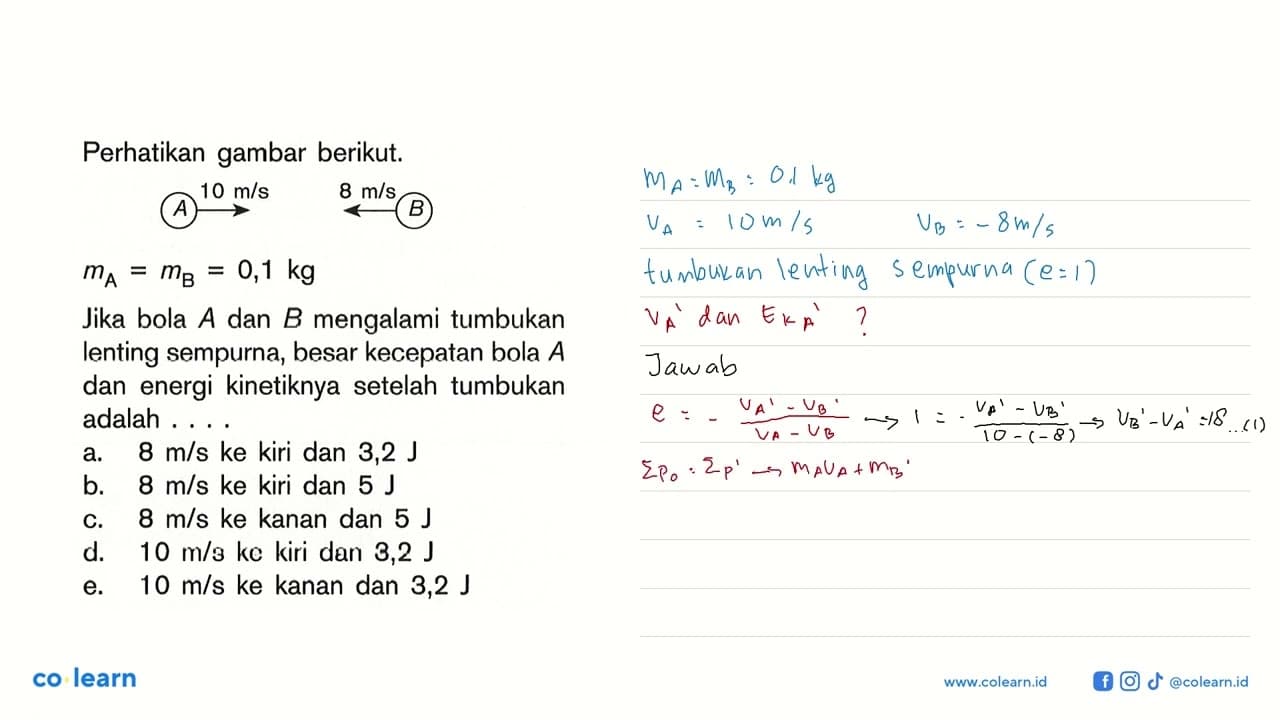 Perhatikan gambar berikut.
10 m/s 8 m/s
A B
mA = mB = 0,1 kg
Jika bola A dan B mengalami tumbukan
lenting sempurna, besar kecepatan bola A
dan energi kinetiknya setelah tumbukan
adalah . . . .
a. 8 m/s ke kiri dan 3,2 J
b. 8 m/s ke kiri dan 5 J
c. 8 m/s ke kanan dan 5 J
d. 10 m/s ke kiri dan 3,2 J
e. 10 m/s ke kanan dan 3,2 J
mA = mB = 0.1 kg
vA = 10 m/s vB = -8 m/s
tumbukan lenting sempurna (e=1)
vA' dan EKA' ?
Jawab
e = - (vA' - vB')/(vA - vB) → 1 = - (vA' - vB')/(10-(-8)) → vB' - vA' = 18 ...(1)
Σpo = Σp' → mAvA + mB'
co learn
www.colearn.id @colearn.id